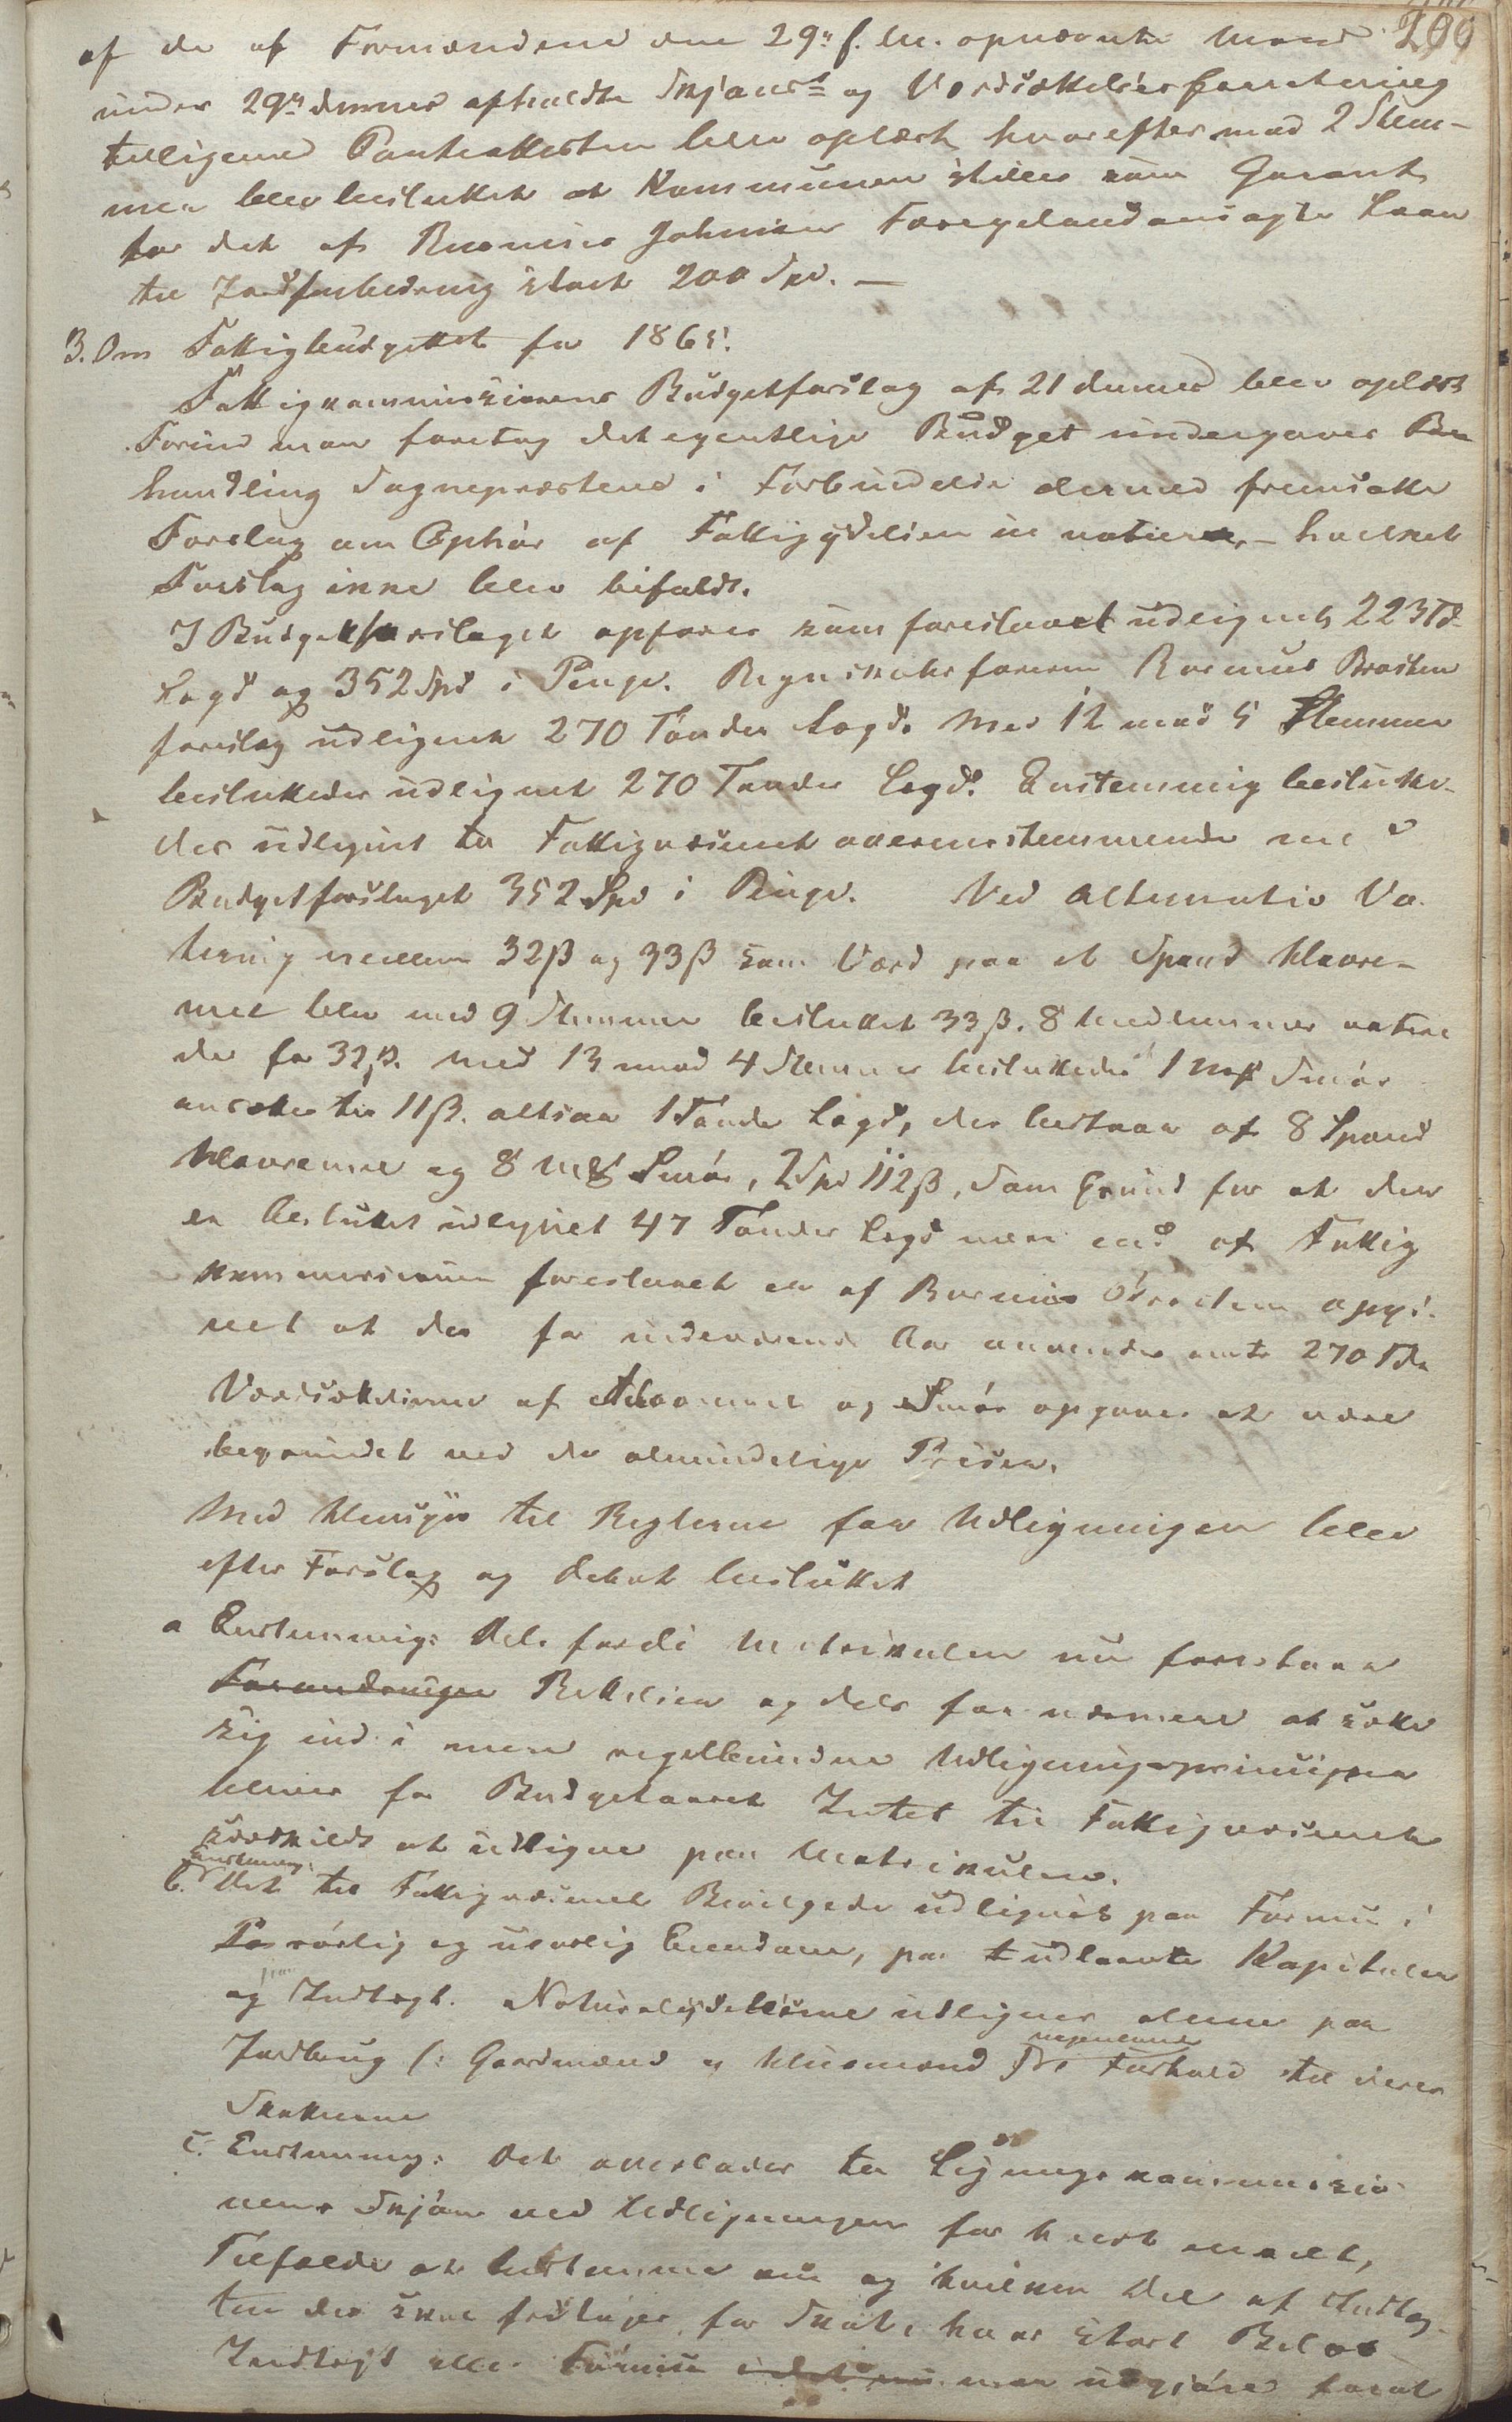 200
af de af Formændene den 29n f. M. opnævnte Mænd
under 29n dennes afholdte Skjøns= og Værdsættelsesforretning
tilligemed Panteattesten blev oplæst, hvorefter med 2 Stem-
mer blev besluttet at Kommunen stilles som Garant
for det af Rasmus Johnsen Færgeland ansøgte Laan
til Jordforbedring stort 200 Spd. —
3. Om Fattigbudgettet for 1865.
Fattigkommissionens Budgetforslag af 21 dennes blev oplæst
Forind man foretog det egentlige Budget undergaves Be
handling Sognepræstens i Forbindelse dermed fremsatte
Forslag om Ophør af Fattigydelsen in natura, – hvilket
Forslag ikke blev bifaldt.
I Budgetforslaget opføres som foreslaaet udlignet 223 Td.
Lægd og 352 Spd i Penge. Regnskabsføreren Rasmus Braaten
foreslog udlignet 270 Tønder Lægd. Med 12 mod 5 Stemmer
besluttedes udlignet 270 Tønder Lægd. Enstemmig beslutte-
des udlignet til Fattigvæsenet overensstemmende med
Budgetforslaget 352 Spd i Penge. Ved alternativ Vo
tering mellem 32 ß og 33 ß som Værd paa et Spand Havre-
mel blev med 9 Stemmer besluttet 33 ß. 8 Medlemmer votere
de for 32 ß. Med 13 mod 4 Stemmer besluttedes 1 Mk Smør
ansættes til 11 ß. altsaa 1 Tønde Lægd, der bestaar af 8 Spand
Havremel og 8 Mk Smør, 2 Spd 112 ß, Som Grund for at der
er besluttet udlignet 47 Tønder Lægd mere end af Fattig
kommissionen foreslaaet er af Rasmus Braaten opgi-
vet at der for indeværende Aar anvendes omtr 270 Tdr
Værdsættelserne af Havremel og Smør opgaves at være
begrundet ved de almindelige Priser.
Med Hensyn til Reglerne for Udligningen blev
efter Forslag og Debat besluttet
a Enstemmig: Dels fordi Matrikulen nu forestaaer
Forandringer Rettelser og dels for nærmere at sætte
sig ind i mere regelbundne Udligningsprincipper
bliver for Budgetaaret Intet til Fattigvæsenet
særskildt at udligne paa Matrikulen.
Enstemmig:
b. Det til Fattigvæsenet Bevilgede udlignes paa Formue i
rørlig og urørlig Eiendom, paa udlaante Kapitaler
paa
og Indtægt. Naturalydelserne udlignes alene paa
Jordbrug (: Gaardmænd og Husmænd for Forhold til deres
Skatterne
c. Enstemmig: Det overlades til Ligningskommissio
nens Skjøn ved Udligningen for hvert enkelt,
Tilfælde at bestemme om og hvilken Del af Indtæg
ten der skal fritages for Skat, hvor stort Beløb
Indtægt eller Formue man udgjøre forat